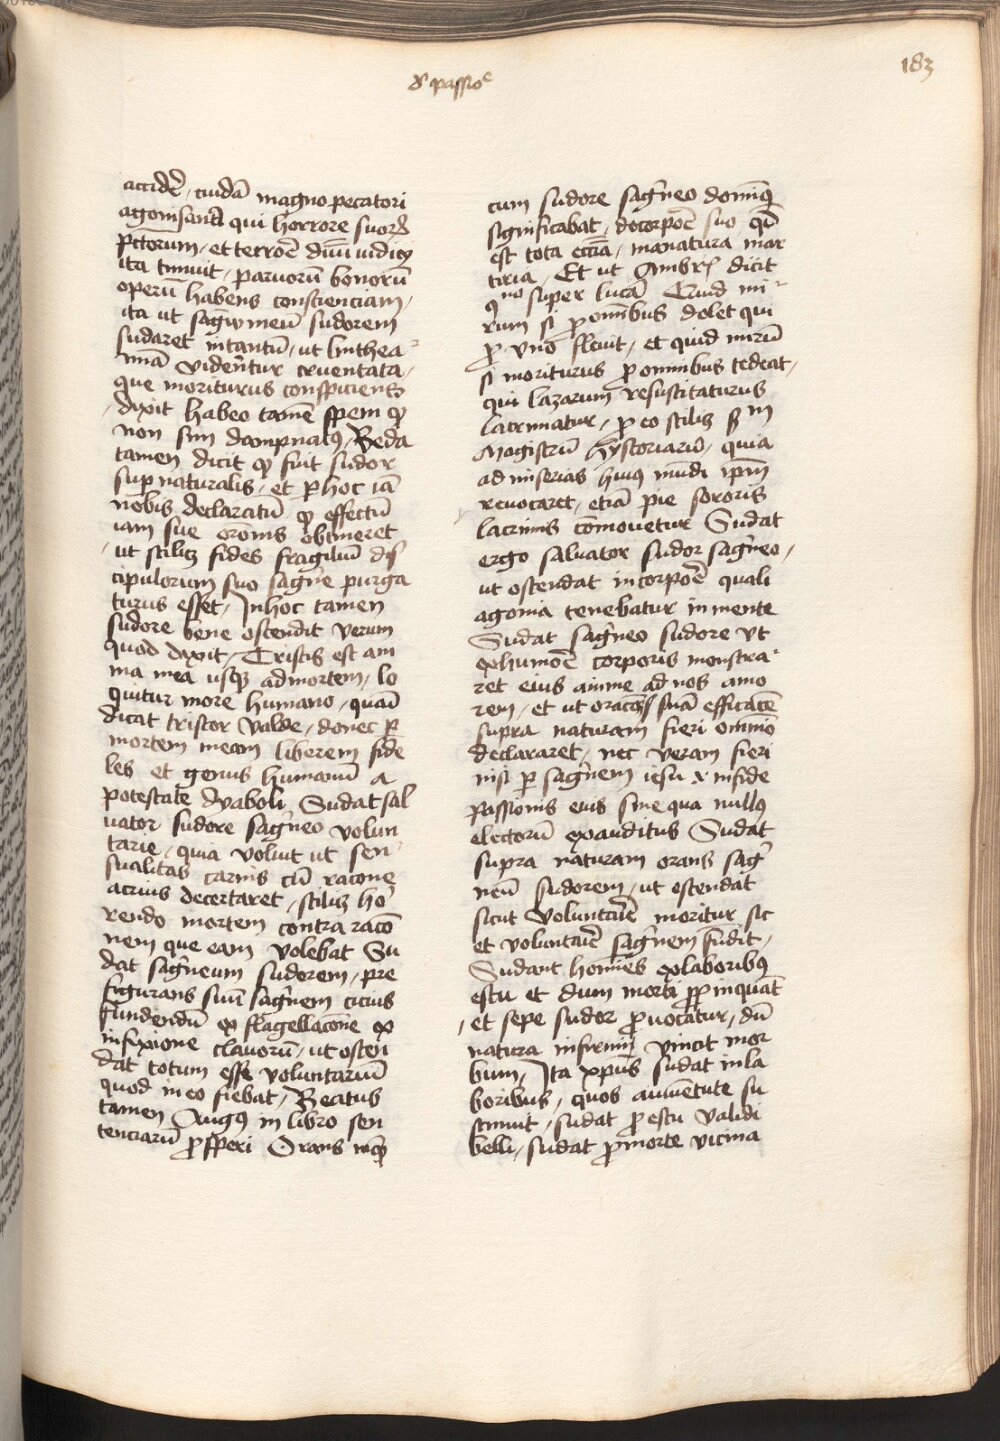 183
de passioe
accidē, cuidā magno pecatori
agonisanti qui horrore suorū
pctorum, et terrorē diuī iudicij
ita timuit, paruorū bonorū
operū habens conscienciam,
ita ut sāgwineū sudorem
sudaret intantū, ut linthea
mīa viderētur cruentata,
que moriturus conspiciens
dixit habeo tamē spem qͥ
non sim dampnatꝰ, Beda
tamen dicit qͥ fuit sudor
supnaturalis, et ꝑ hoc iā
nobis declaratū qͥ effectū
iam sue orōnis obtineret
ut scilicꝫ fides fragiliū dis
cipulorum suo sāgīe purga
turus esset, Inhoc tamen
sudore bene ostendit verum
quod dixit, Tristis est am
ma mea usqꝫ ad mortem, lo
quitur more humano, quasi
dicat tristor valde, donec ꝑ
mortem meam liberem fide
les et genus humanū a
potestate dyaboli, Sudat sal
uator sudore sāgīneo volun
tarie, quia voluit ut sen
sualitas carnis cū racone
acrius decertaret, scilicꝫ ho
rendo mortem contra racō
nem que eam volebat Su
dat sāgīneum sudorem, pre
figurans suū sāgīnem cicius
fundendū ex flagellacōne ex
infixione clauorū, ut osten
dat totum esse voluntariū
quod in eo fiebat, Beatus
tamen Augꝰ in libro sen
tenciarū ꝓsperi Orans inqͥ
cum sudore sāgīneo dominꝰ
significabat, de corpoē suo, qd
est tota eccīa, manatura mar
tiria, Et ut Ambrs dicit
qno super lucā Quid mi
rum si ꝓ omībus dolet qui
ꝓ vno fleuit, et quid mirū
si moriturus ꝓ omnibus tedeat,
qui lazarum resuscitaturus
lacrimatur, ꝓ eo scilicꝫ sm
magistrū hystoriarū, quia
ad miserias huiꝰ mūdi ipm
reuocaret, etiā pie sororis
lacrimis cōmouetur Sudat
ergo saluator sudor sāgīneo,
ut ostendat in corpoē quali
agonia tenebatur in mente
Sudat sāgīneo sudore vt
ex humoē corporis monstra
ret eius anime ad nos amo
rem, et ut oracōis suā efficacē
supra naturam fieri omnīo
declararet, nec veram fieri
nisi ꝑ sāgīnem iesu x infide
passionis eius sine qua nullꝰ
electorū exauditus Sudat
supra naturam orans sāg
neū sudorem, ut ostendat
sicut voluntarie moritur, sic
et voluntarie sāgīnem fudit,
Sudant homīes ex laboribꝰ
estu et dum morti ꝓpinquāt
, et sepe sudor ꝓuocatur, dū
natura infirmū vincit mor
bum, Ita xpūs sudat in la
boribus, quos
stinuit, sudat ꝓ estu validi
belli, sudat ꝓ morte vicina